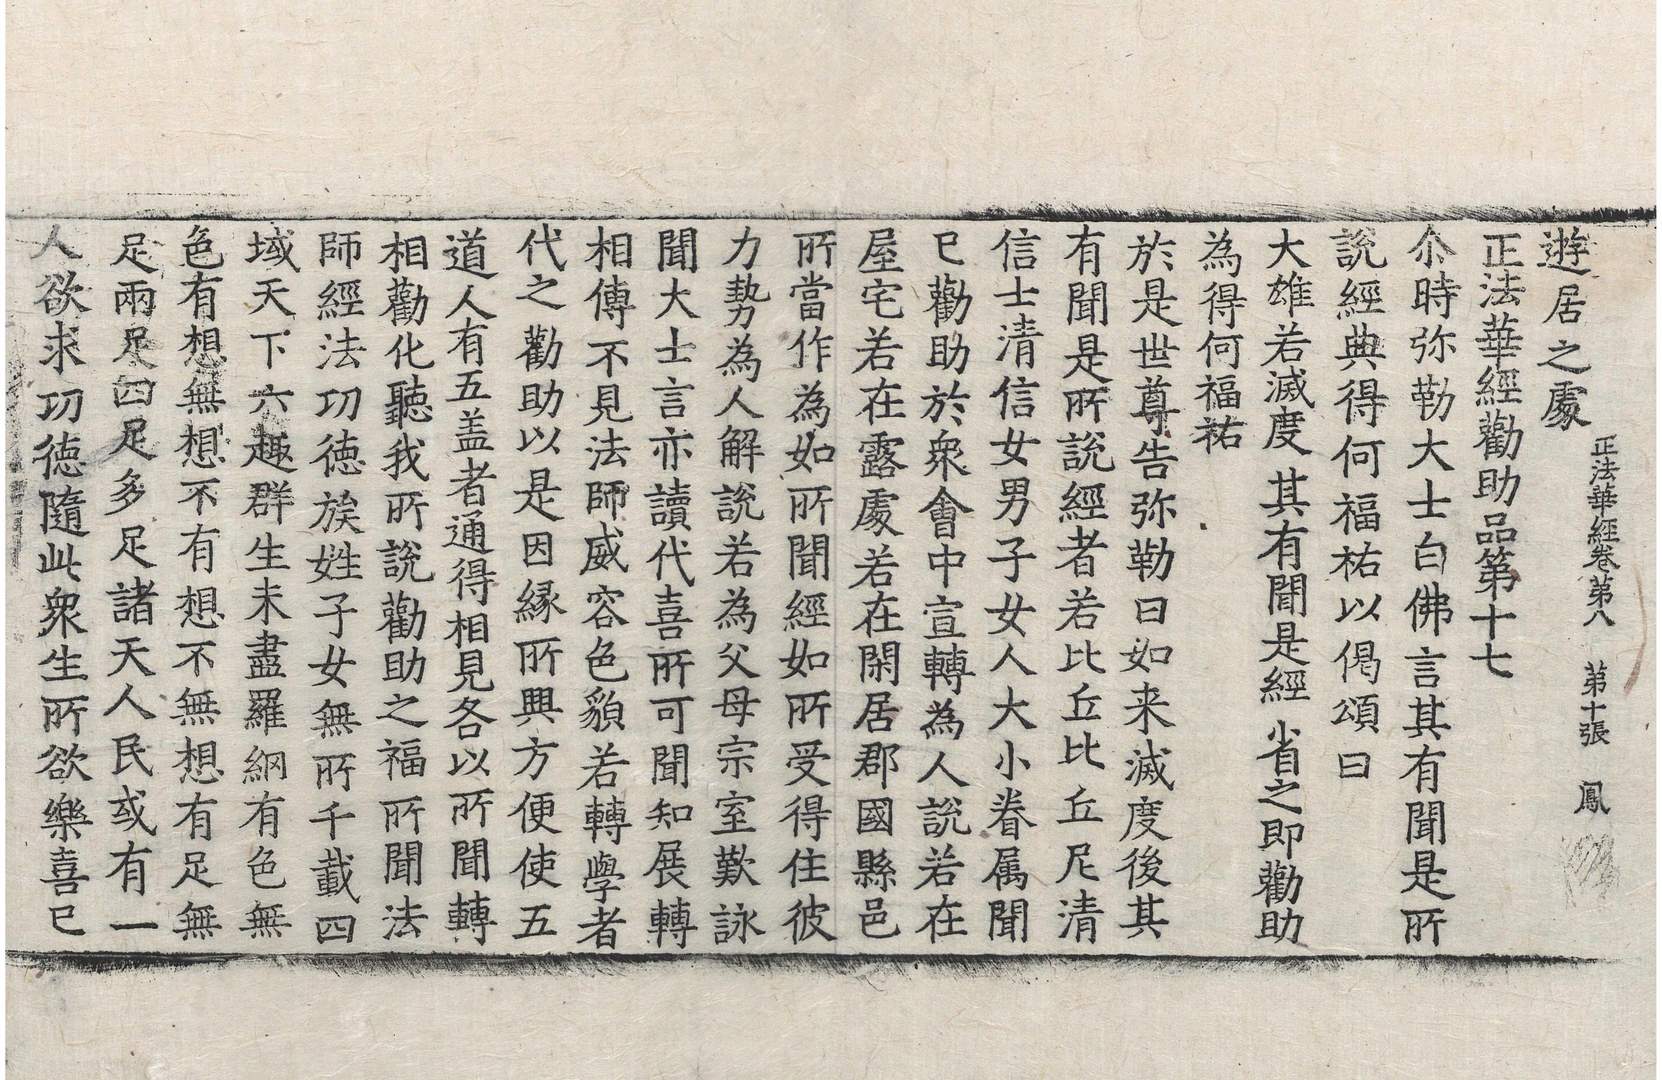 遊居之處
正法華經卷第八　第十張　鳳
正法華經勸助品第十七
尒時弥勒大士白佛言其有聞是所
說經典得何福祐以偈頌曰
大雄若滅度　其有聞是經　省之即勸助
為得何福祐
於是世尊告弥勒曰如来滅度後其
有聞是所說經者若比丘比丘尼清
信士清信女男子女人大小眷属聞
已勸助於衆會中宣轉為人說若在
屋宅若在露處若在閑居郡國縣邑
所當作為如所聞經如所受得住彼
力勢為人解說若為父母宗室歎詠
聞大士言亦讀代喜所可聞知展轉
相傳不見法師威容色貌若轉學者
代之勸助以是因緣所興方便使五
道人有五盖者通得相見各以所聞轉
相勸化聽我所說勸助之福所聞法
師經法功徳族姓子女無所千載四
域天下六趣群生未盡羅網有色無
色有想無想不有想不無想有足無
足兩足四足多足諸天人民或有一
人欲求功徳隨此衆生所欲樂喜已